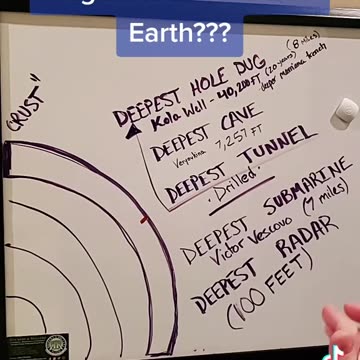 Earth???
CRUST"
DEEPEST HOLE DUG (8 miles)
Kola Well - 40,200 FT (20 years)
DEEPEST CAVE
7,257 FT
DEEPEST TUNNEL
Drilled
DEEPEST SUBMARINE
Victor Vescovo (7 miles)
DEEPEST RADAR
(100 FEET)